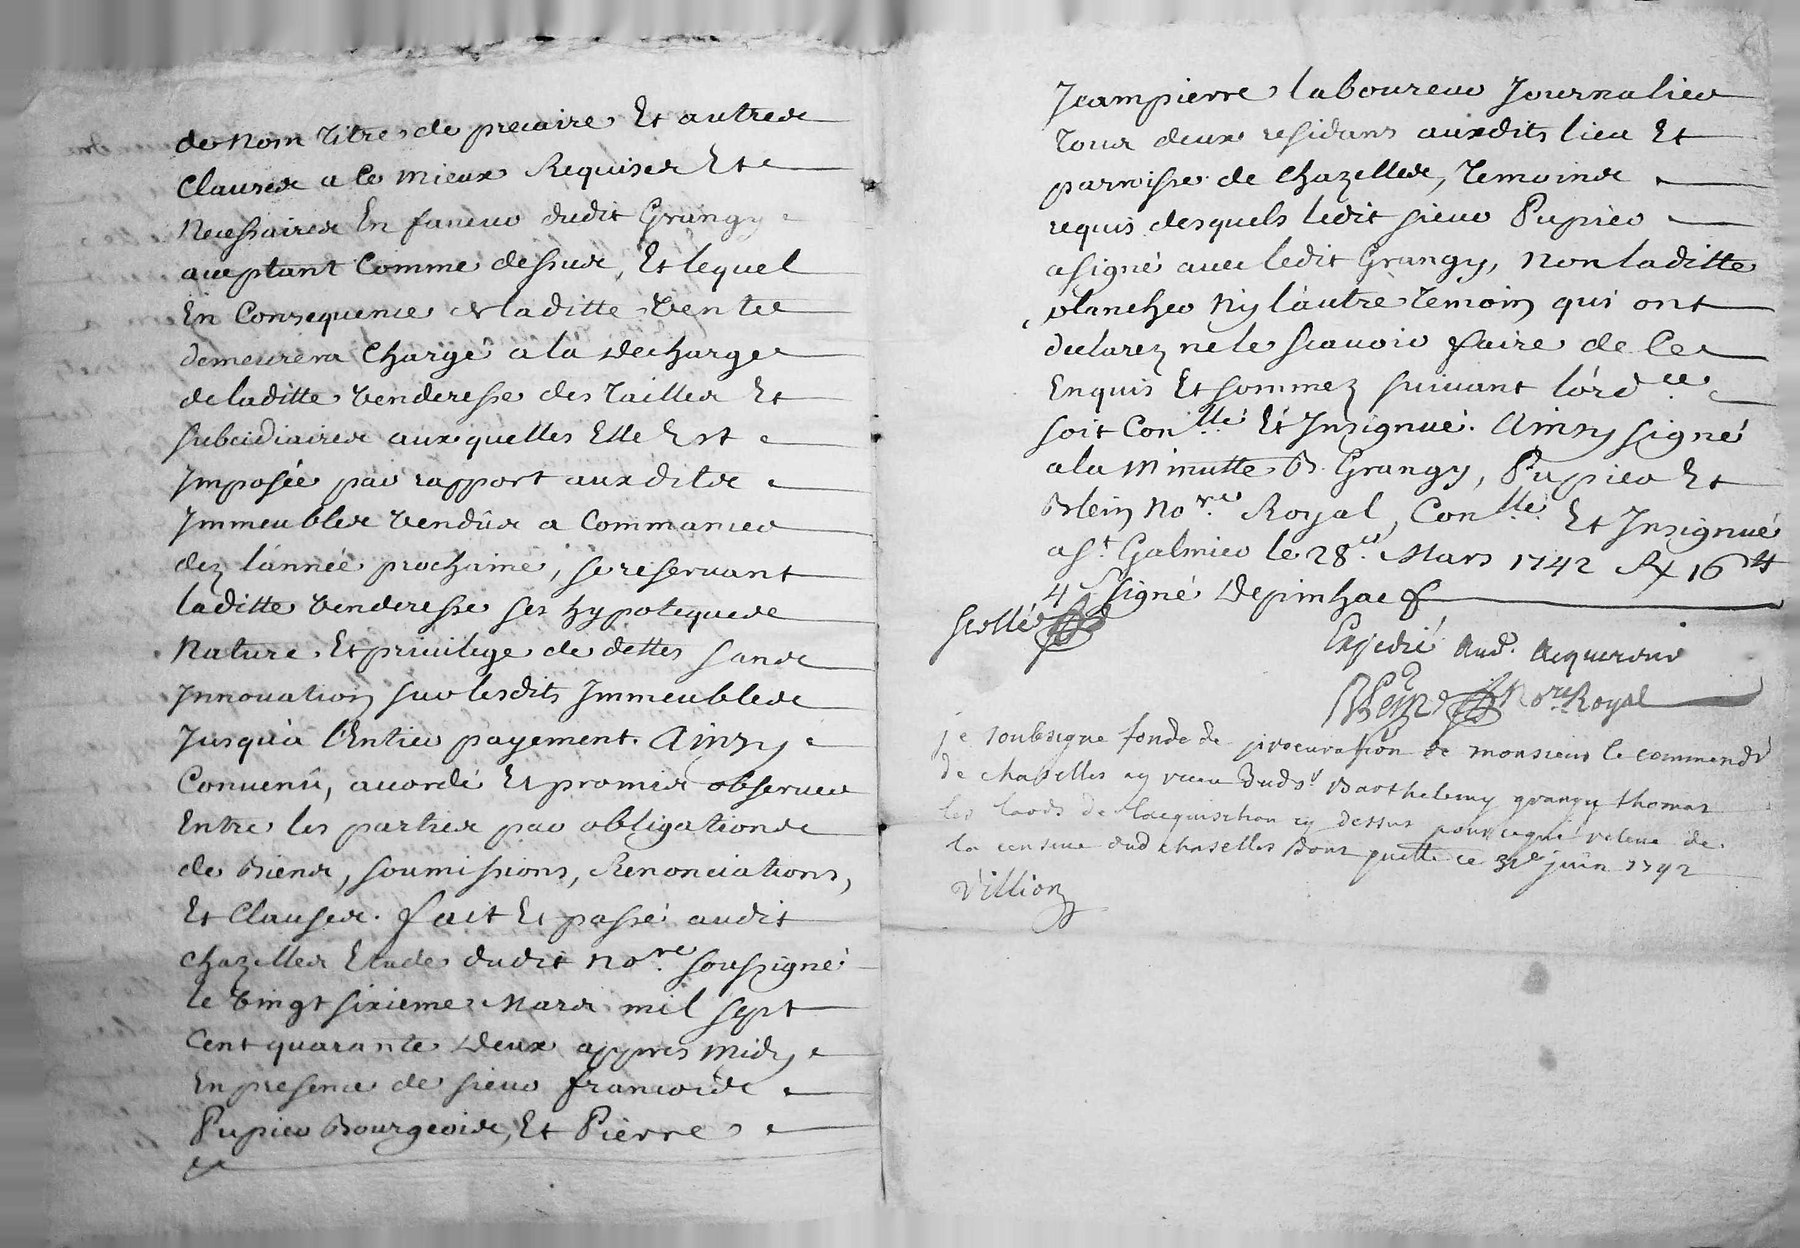 de Nom titre de precaire Et autres
Clauses a ce mieux Requises Et
Necessaires En faveur dudit Grangy
aceptant Comme dessus, Et lequel
En Consequence de laditte Vente
demeurera Chargé a la decharge
de laditte Venderesse des Tailles Et
subcidiaires auxquelles Elle Est
Imposée par rapport auxdits
Immeubles Vendûs a Commancer
dez l'année prochaine, se reservant
laditte Venderesse ses hypoteques
Nature Et privilege de dettes sans
Innovation sur lesdits Immeubles
Jusqu'a l'Entier payement. Ainsy
Convenû, acordé Et promis observer
Entre les parties par obligations
de Biens, soumissions, Renonciations,
Et Clauses. fait Et passé audit
Chazelles Etude dudit No.re soussigné
le Vingt sixieme Mars mil sept
Cent quarante Deux appres Midy
En presence de sieur francois
Pupier Bourgeois, Et Pierre
Jeampierre laboureur Journalier
Tous deux residans auxdits lieu Et
parroisse de Chazelles, Temoins
requis desquels ledit sieur Pupier
a signé avec ledit Grangy, Non laditte
blancher Ny l'autre Temoin qui ont
declarez ne le scavoir faire de Ce
Enquis Et sommez suivant l'ord.ce
soit Con.llé Et Insignué. Ainsy signé
a la Minutte B. Grangy, Pupier Et
Blein No.re Royal, Con.llé Et Insignué
a S.t Galmier le 28.e Mars 1742 Rx 16 tt
4 s signé Depinhac
scellé
Expedié Aud. Acquereur
Blein No.re Royal
je soubsigne fonde de procuration de monsieur le commandr
de chaselles ay receu Dud sr Barthelemy grangy thomas
les laods de lacquisition cy dessus pour ce qui releve de
la censive dud chaselles Dont quitte ce 31e juin 1742
Villion